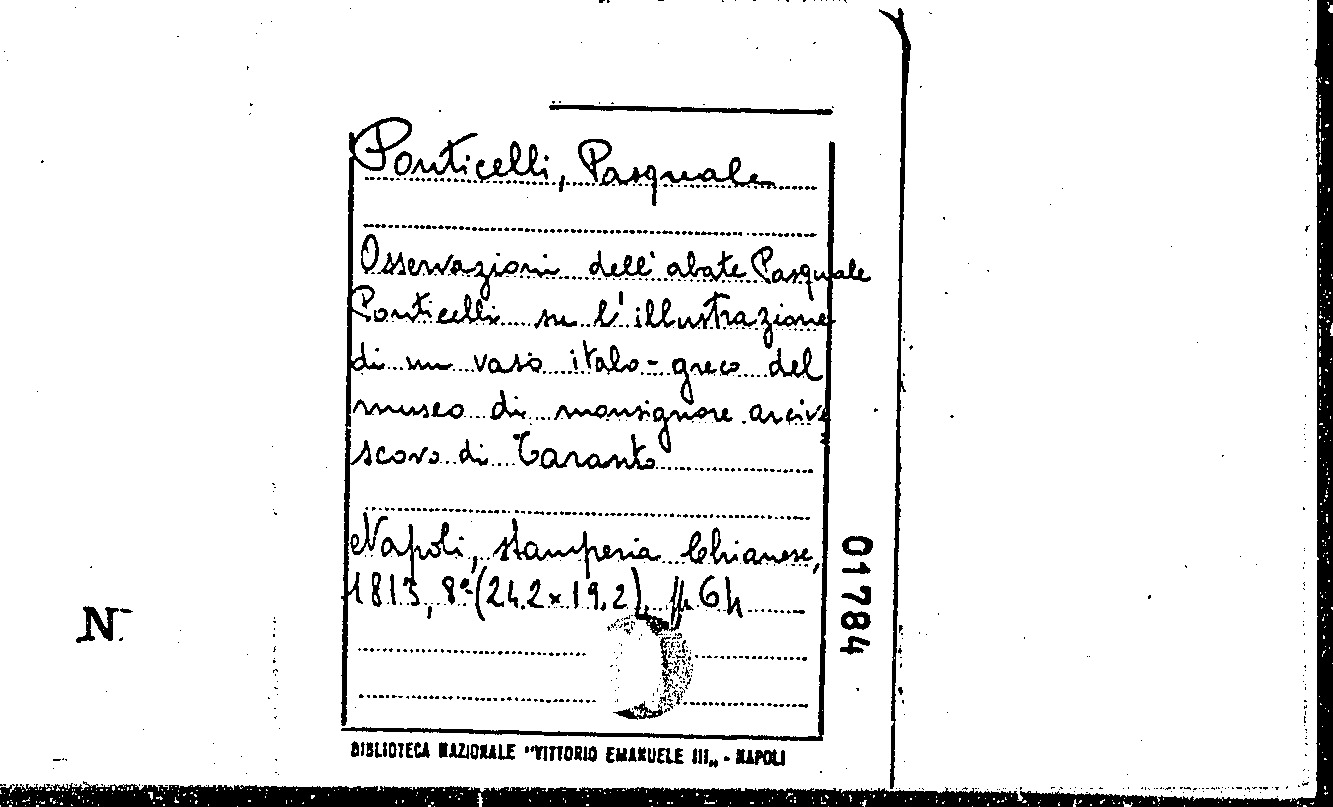 Ponticelli, Pasquale
Osservazioni dell'abate Pasquale
Ponticelli su l'illustrazione
di un vaso italo-greco del
museo di monsignore arcive
scovo di Taranto
Napoli, stamperia Chianese,
1813, 8º (24.2 × 19.2), pp. 64
01784
N
BIBLIOTECA NAZIONALE "VITTORIO EMANUELE III„ - NAPOLI